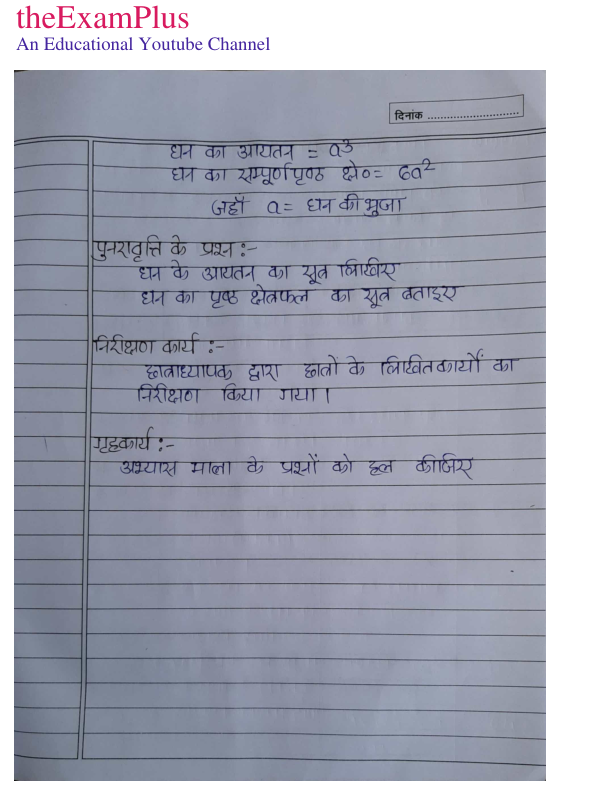 theExamPlus
An Educational Youtube Channel
दिनांक ..............................
घन का आयतन = a³
घन का सम्पूर्णपृष्ठ क्षे० = 6a²
जहाँ a = घन की भुजा
पुनरावृत्ति के प्रश्न :-
घन के आयतन का सूत्र लिखिए
घन का पृष्ठ क्षेत्रफल का सूत्र बताइए
निरीक्षण कार्य :-
छात्राध्यापक द्वारा छात्रों के लिखित कार्यों का
निरीक्षण किया गया।
गृहकार्य :-
अभ्यास माला के प्रश्नों को हल कीजिए